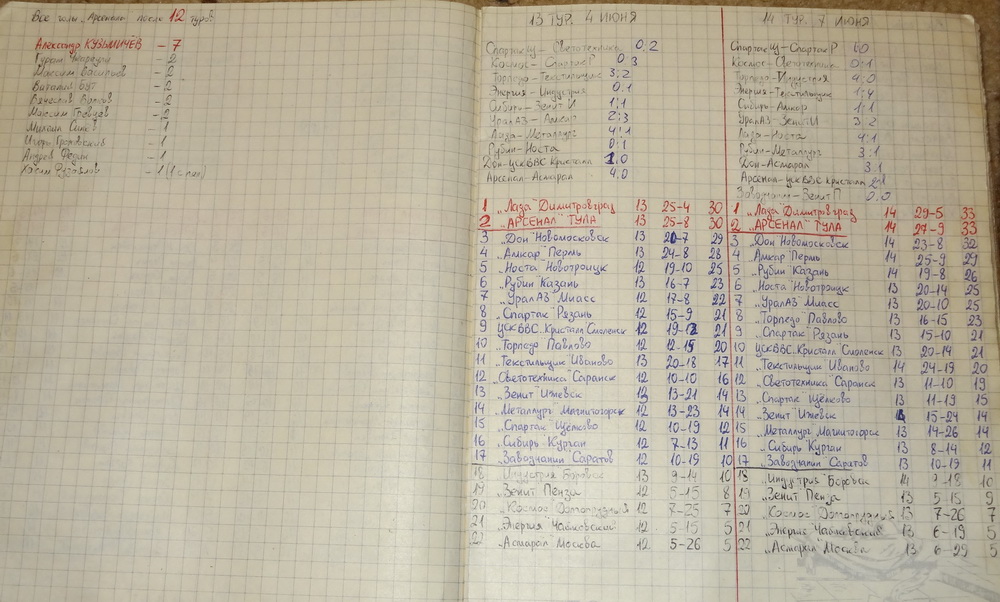 Все голы „Арсенала" после 12 туров
Александр КУЗЬМИЧЁВ - 7
- 2
Максим Васильев - 2
Виталий Бут - 2
Вячеслав - 2
Максим - 2
Михаил - 1
Игорь - 1
Андрей - 1
- 1 (1 с пен)
13 ТУР. 4 ИЮНЯ
Спартак Щ - Светотехника 0:2
Космос - Спартак Р 0:3
Торпедо - Текстильщик 3:2
Энергия - Индустрия 0:1
Сибирь - Зенит И 1:1
УралАЗ - Амкар 2:3
Лада - Металлург 4:1
Рубин - Носта 0:1
Дон - ЦСК ВВС Кристалл 1:0
Арсенал - Асмарал 4:0
1 „Лада" Димитровград 13 25-4 30
2 „АРСЕНАЛ" ТУЛА 13 25-8 30
3 „Дон" Новомосковск 13 20-7 29
4 „Амкар" Пермь 13 24-8 28
5 „Носта" Новотроицк 12 19-10 25
6 „Рубин" Казань 13 16-7 23
7 „УралАЗ" Миасс 12 17-8 22
8 „Спартак" Рязань 12 15-9 21
9 ЦСК ВВС „Кристалл" Смоленск 12 19-12 21
10 „Торпедо" Павлово 12 12-15 20
11 „Текстильщик" Иваново 13 20-18 17
12 „Светотехника" Саранск 12 10-10 16
13 „Зенит" Ижевск 12 13-21 14
14 „Металлург" Магнитогорск 13 13-23 14
15 „Спартак" Щёлково 12 10-19 12
16 „Сибирь" Курган 12 7-13 11
17 „Заводчанин" Саратов 12 10-19 10
18 „Индустрия" Боровск 13 9-14 10
19 „Зенит" Пенза 12 5-15 8
20 „Космос" Долгопрудный 12 7-25 7
21 „Энергия" Чайковский 12 5-15 5
22 „Асмарал" Москва 12 5-26 5
14 ТУР. 7 ИЮНЯ
Спартак Щ - Спартак Р 1:0
Космос - Светотехника 0:1
Торпедо - Индустрия 4:0
Энергия - Текстильщик 1:4
Сибирь - Амкар 1:1
УралАЗ - Зенит И 3:2
Лада - Носта 4:1
Рубин - Металлург 3:1
Дон - Асмарал 3:1
Арсенал - ЦСК ВВС Кристалл 2:1
Заводчанин - Зенит П 0:0
1 „Лада" Димитровград 14 29-5 33
2 „АРСЕНАЛ" ТУЛА 14 27-9 33
3 „Дон" Новомосковск 14 23-8 32
4 „Амкар" Пермь 14 25-9 29
5 „Рубин" Казань 14 19-8 26
6 „Носта" Новотроицк 13 20-14 25
7 „УралАЗ" Миасс 13 20-10 25
8 „Торпедо" Павлово 13 16-15 23
9 „Спартак" Рязань 13 15-10 21
10 ЦСК ВВС „Кристалл" Смоленск 13 20-14 21
11 „Текстильщик" Иваново 14 24-19 20
12 „Светотехника" Саранск 13 11-10 19
13 „Спартак" Щёлково 13 11-19 15
14 „Зенит" Ижевск 15-24 14
15 „Металлург" Магнитогорск 13 14-26 14
16 „Сибирь" Курган 13 8-14 12
17 „Заводчанин" Саратов 13 10-19 11
18 „Индустрия" Боровск 14 9-18 10
19 „Зенит" Пенза 13 5-15 9
20 „Космос" Долгопрудный 13 7-26 7
21 „Энергия" Чайковский 13 6-19 5
22 „Асмарал" Москва 13 6-29 5